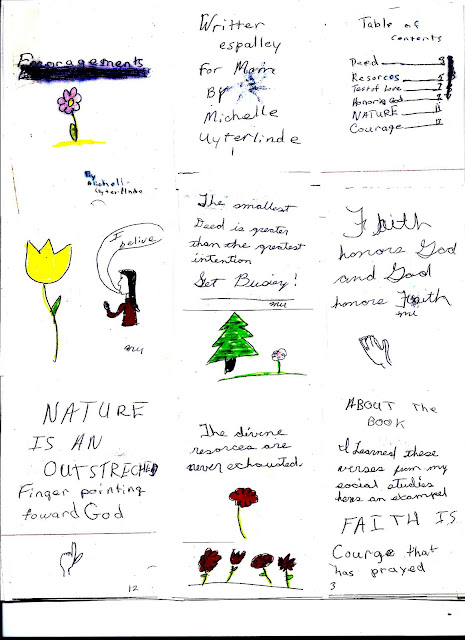 Encoragements
By
Michelle
Uyterlinde
Writter
espalley
For Mom
By
Michelle
Uyterlinde
1
Table of
contents
Deed 3
Resorces 5
Test of Love 7
Honoring God 9
NATURE 11
Courage 12
I belive
mu
The smallest
Deed is greater
than the greatest
intention
Get Busiey!
mu
Faith
honors God
and God
honors Faith
mu
NATURE
IS AN
OUTSTRECHED
Finger pointing
toward God
12
The divine
resorces are
never exhausted
ABOUT The
BOOK
I Learned these
verses from my
social studies
heres an exampel
FAITH IS
Courge that
has prayed
3